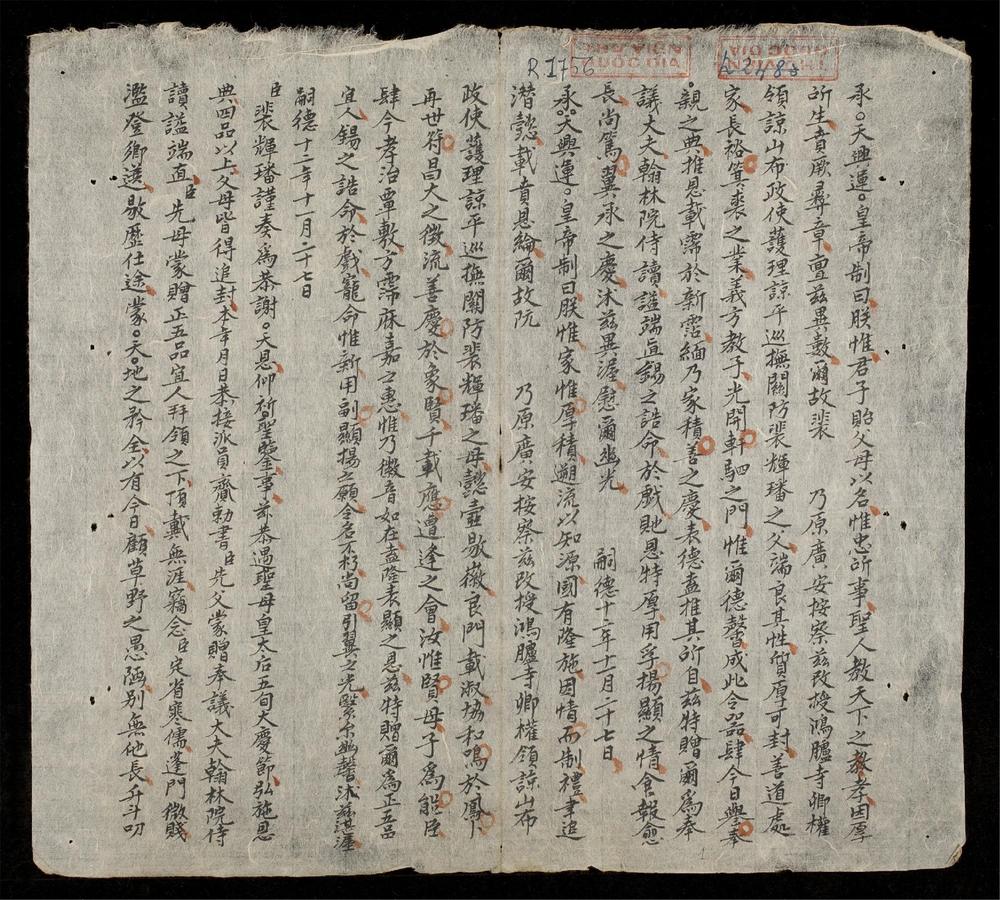 R.1756
承天興運皇帝制曰朕惟君子貽父母以名惟忠所事聖人教天下之教孝因厚
所生賁厥彝章亶茲異數爾故裴 乃原廣安按察茲改授鴻臚寺卿權
領諒山布政使護理諒平巡撫關防裴輝璠之父端良其性質厚可封善道處
家長裕箕裘之業義方教子光開軒駟之門惟爾德馨成此令器肆今日舉奉
親之典推恩載霈於新霑緬乃家積善之慶表德盍推其所自茲特贈爾為奉
議大夫翰林院侍讀諡端直錫之誥命於戲貤恩特厚用孚揚顯之情食報愈
長尚篤翼承之慶沐茲異渥慰爾幽光 嗣德十二年十一月二十七日
承天興運皇帝制曰朕惟家惟厚積遡流以知源國有隆施因情而制禮聿追
潛懿載賁恩綸爾故阮 乃原廣安按察茲改授鴻臚寺卿權領諒山布
政使護理諒平巡撫關防裴輝璠之母懿壼歇徽良門載淑協和鳴於鳳卜
再世符昌大之徵流善慶於象賢千載應遭逢之會汝惟賢母子為能臣
肆今孝治覃敷方霈庥嘉之惠惟乃徽音如在盍隆表顯之恩茲特贈爾為正五品
宜人錫之誥命於戲寵命惟新用副顯揚之願令名不朽尚留引翼之光緊爾幽馨沐茲湛渥
嗣德十二年十一月二十七日
臣裴輝璠謹奏為恭謝天恩仰祈聖鑒事茲恭遇聖母皇太后五旬大慶節弘施恩
典四品以上父母皆得追封本年月日恭接派員齎勅書臣先父蒙贈奉議大夫翰林院侍
讀諡端直臣先母蒙贈正五品宜人拜領之下頂戴無涯竊念臣定省寒儒蓬門微賤
濫登鄉選歇歷仕途蒙天地之矜全以有今日顧草野之愚陋別無他長升斗叨